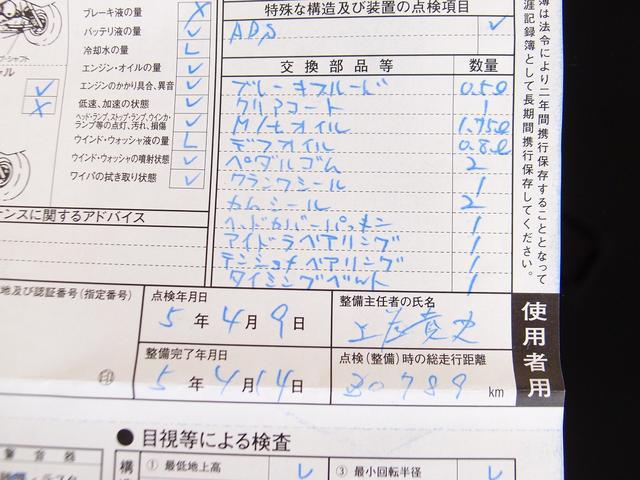 ブレーキ液の量
バッテリ液の量
冷却水の量
エンジン・オイルの量
エンジンのかかり具合、異音
低速、加速の状態
ヘッド・ランプ、ストップ・ランプ、ウインカ・
ランプ等の点灯、汚れ、損傷
ウインド・ウォッシャ液の量
ウインド・ウォッシャの噴射状態
ワイパの拭き取り状態
ナンスに関するアドバイス
特殊な構造及び装置の点検項目
ADS
交換部品等 数量
ブレーキフルード 0.5ℓ
クリアコート 1
M/tオイル 1.75ℓ
デフオイル 0.8ℓ
ペダルゴム 2
クランクシール 1
カムシール 2
ヘッドカバーパッキン 1
アイドラベアリング 1
テンショナベアリング 1
タイミングベルト 1
簿は法令により二年間携行保存することとなって
涯記録簿として長期間携行保存してください。
地及び認証番号(指定番号)
印
点検年月日
5年4月9日
整備主任者の氏名
整備完了年月日
5年4月14日
点検(整備)時の総走行距離
30789 km
使用者用
●目視等による検査
警音器
構
① 最低地上高
③ 最小回転半径